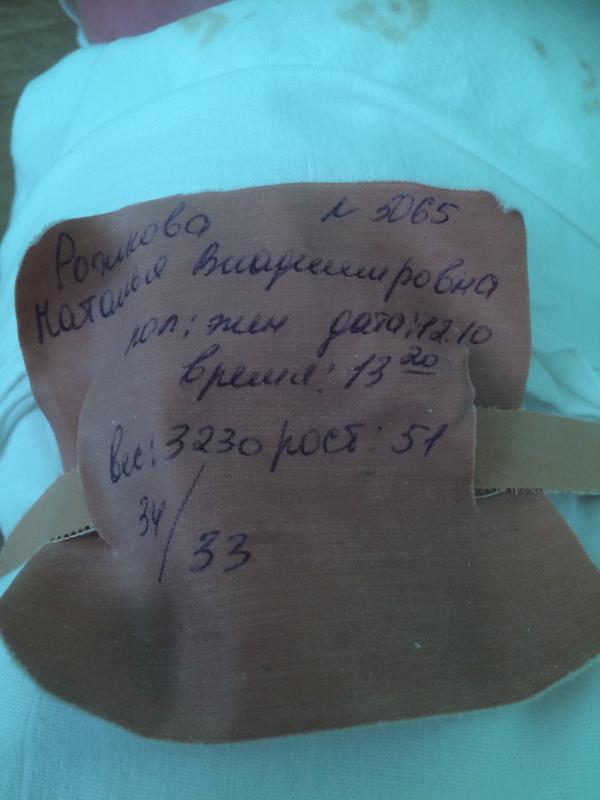 № 5065
Рожкова
Наталья Владимировна
пол: жен дата: 12.10
время: 13 20
вес: 3230 рост: 51
34/33